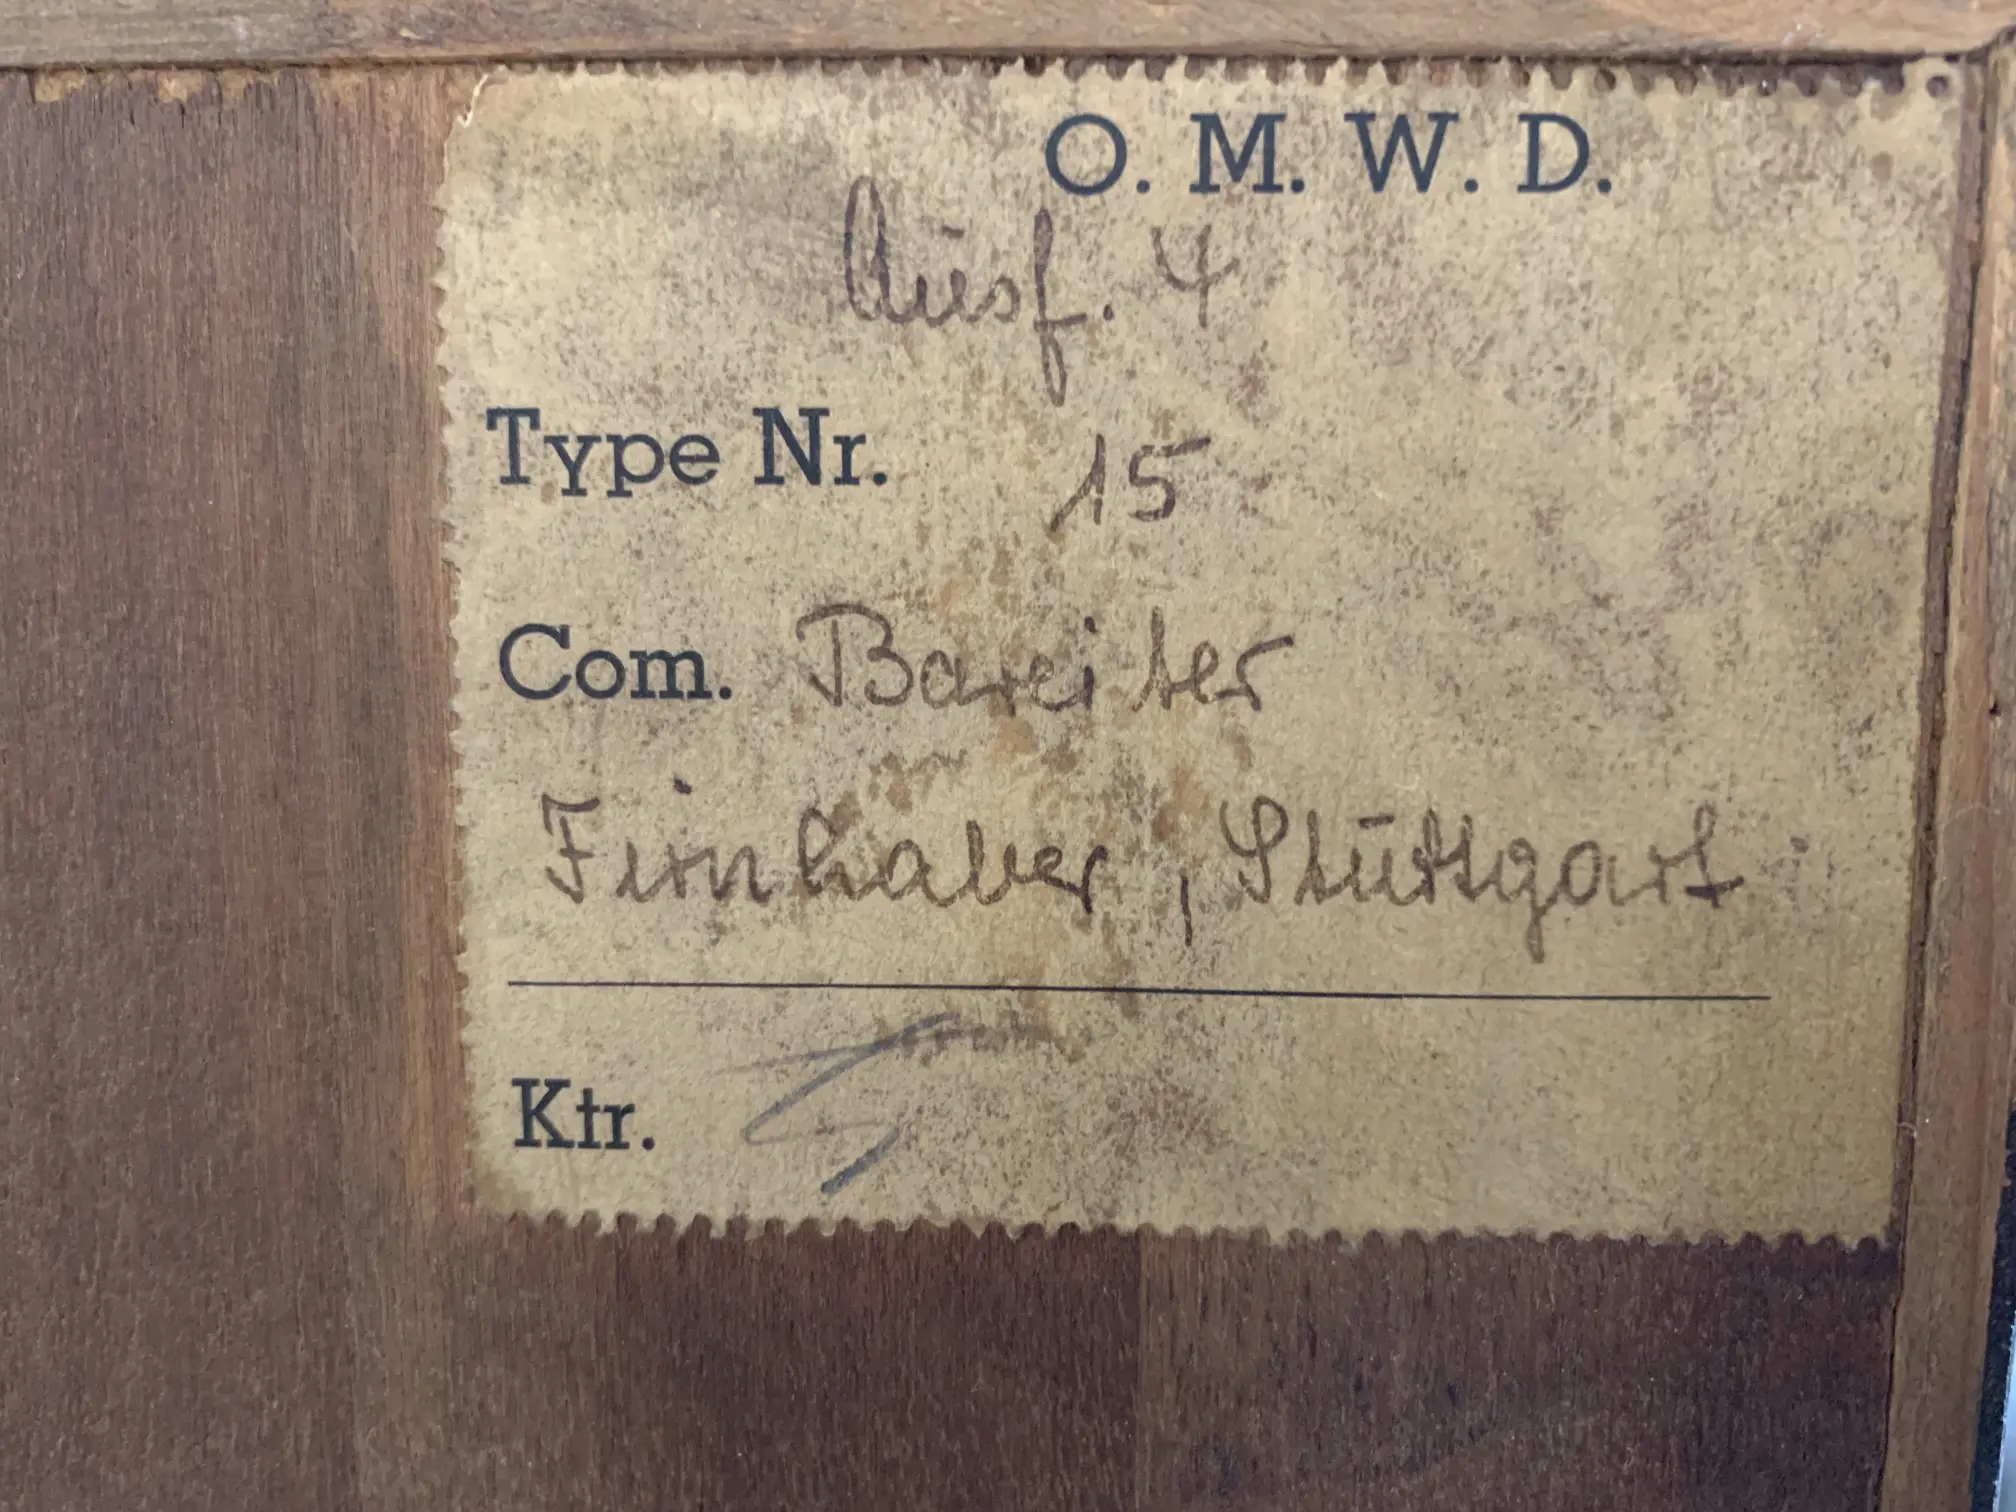 O. M. W. D.
Ausf. 4
Type Nr. 15
Com. Bareiter
Firnhaber, Stuttgart
Ktr.